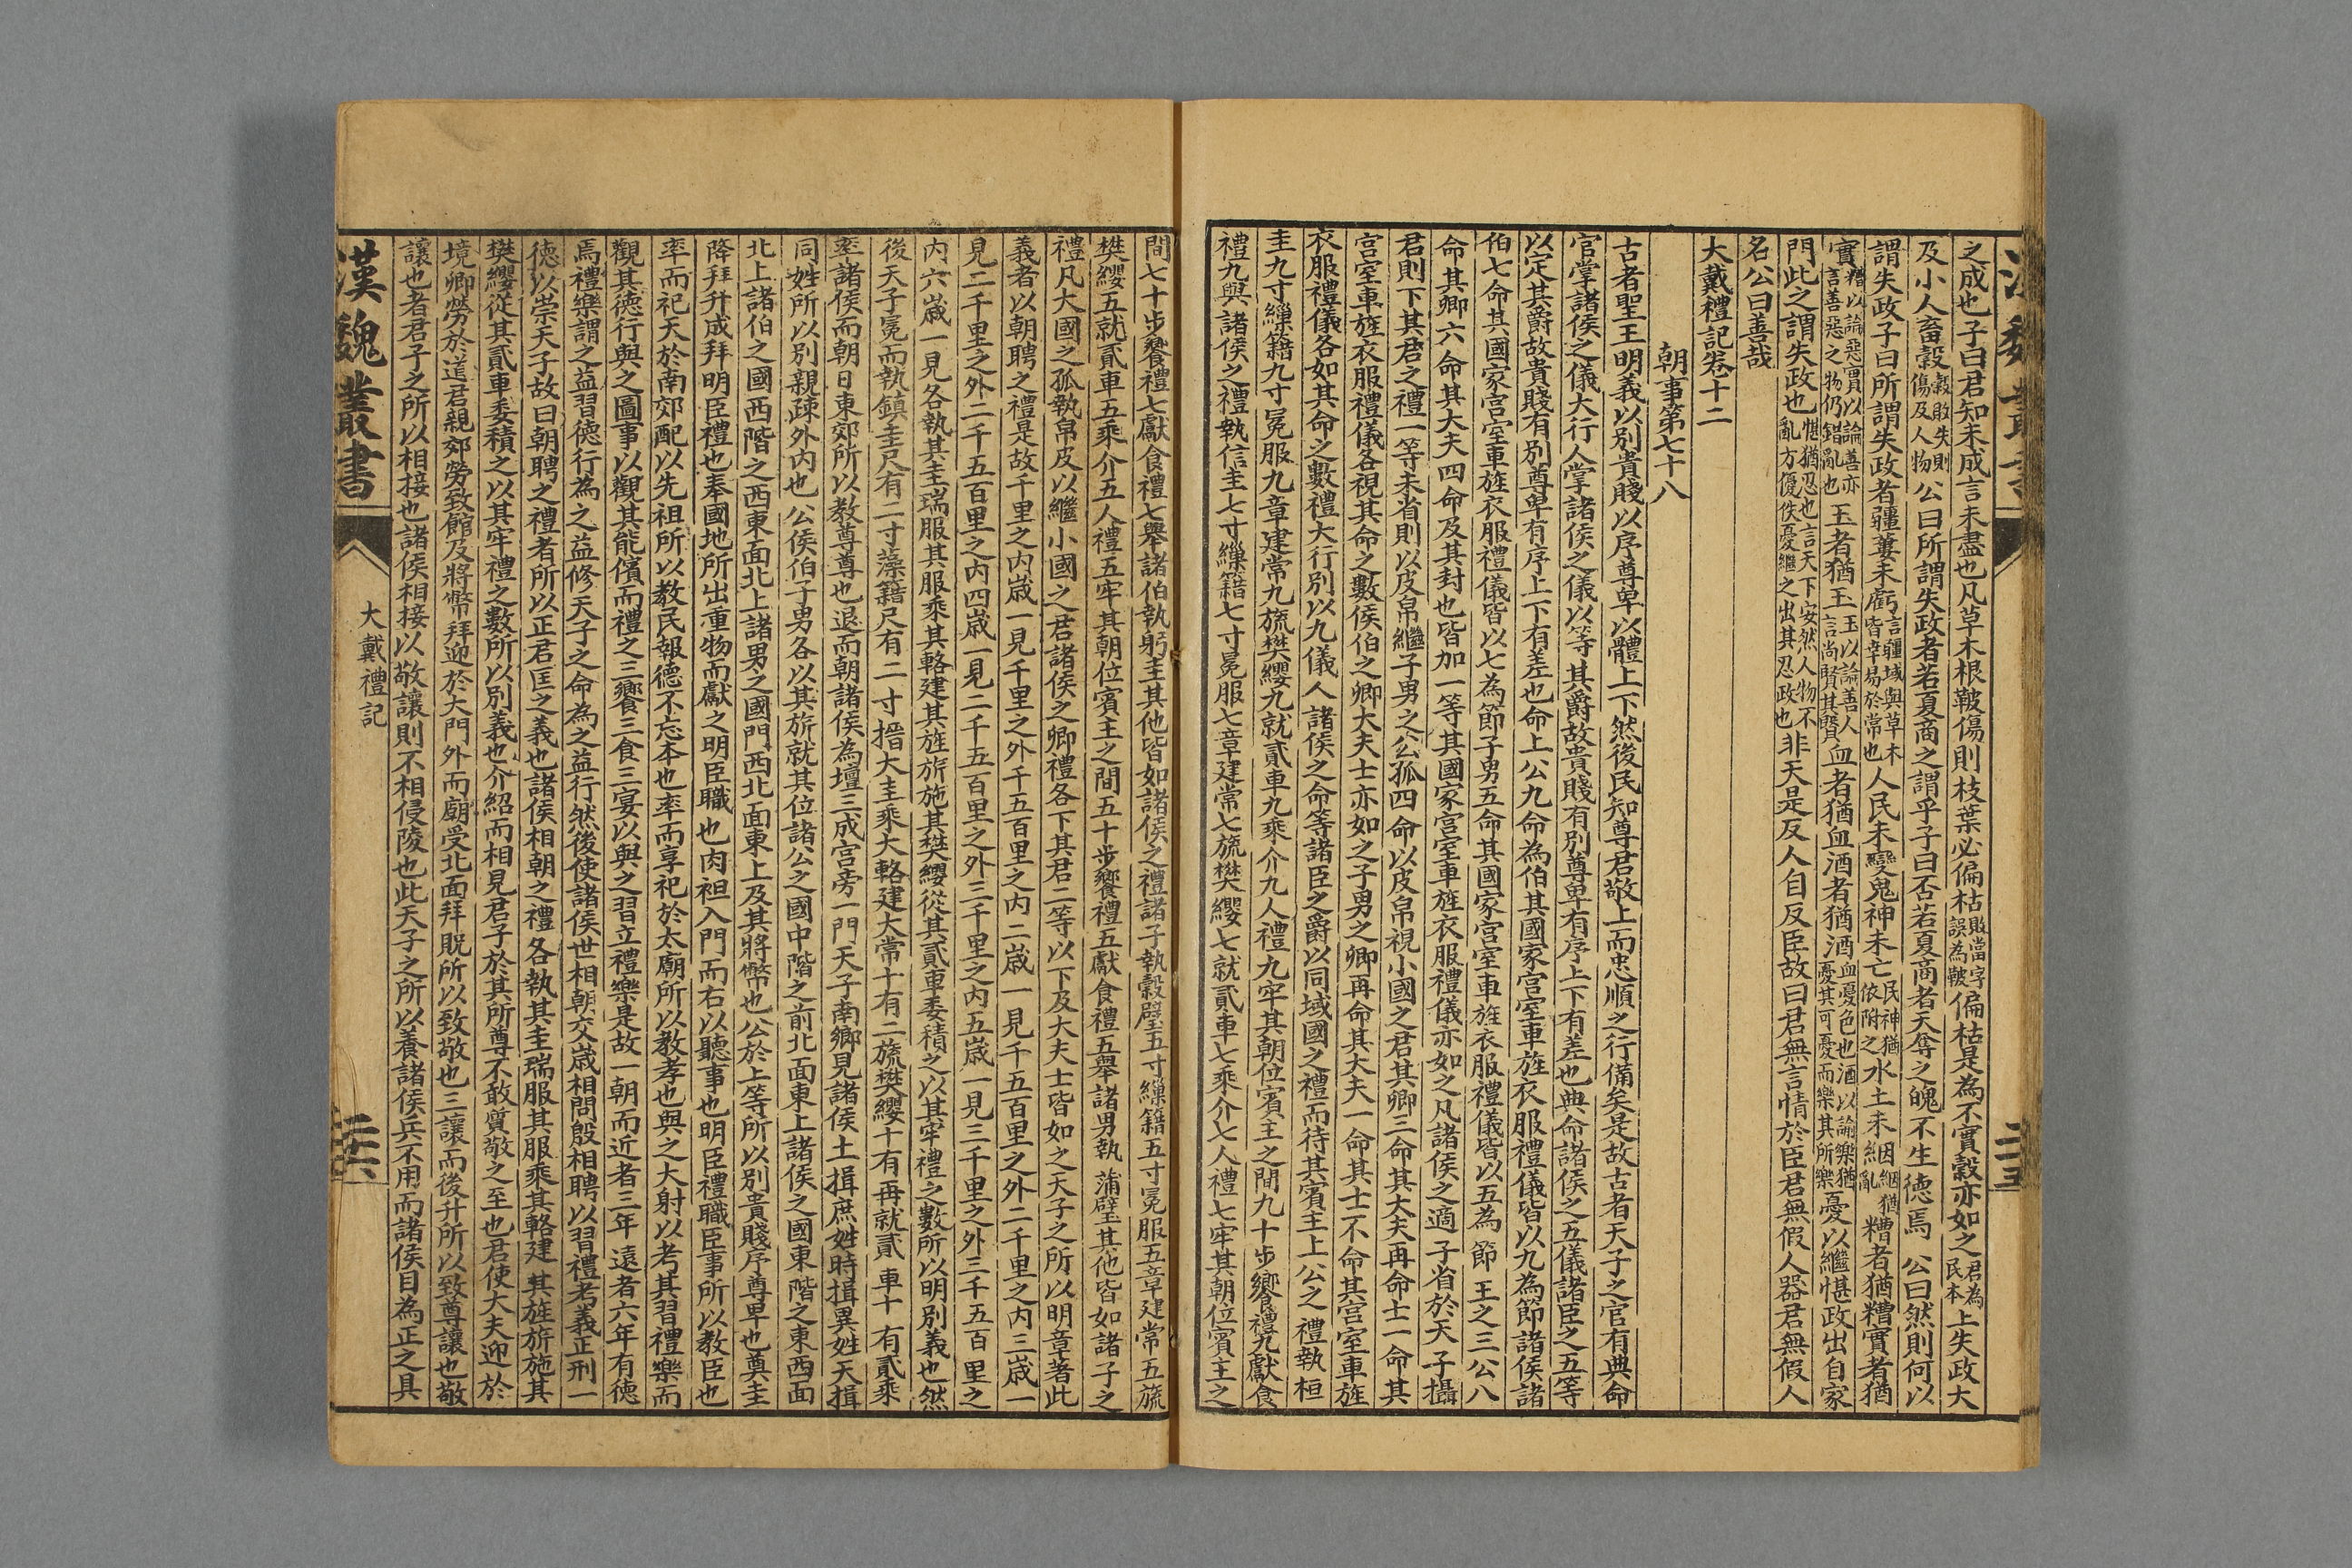 之成也子曰君知未成言未盡也凡草木根鞁傷則枝葉必偏枯敗當字誤為鞁偏枯是為不實穀亦如之君為民本上失政大
及小人畜穀穀敗失則傷及人物公曰所謂失政者若夏商之謂乎子曰否若夏商者天奪之魄不生德焉公曰然則何以
謂失政子曰所謂失政者疆蔞未虧言疆域與草木皆幸易於常也人民未變鬼神未亡民神猶依附之水土未絪因絪猶亂糟者猶糟實者猶
實糟以論惡實以論善亦言善惡之物仍錯亂也玉者猶玉玉以論善人言尚賢其賢血者猶血酒者猶酒血憂色也酒以論樂猶憂其可憂而樂其所樂憂以繼愖政出自家
門此之謂失政也愖猶忍也言天下安然人物不亂方優佚憂繼之出其忍政也非天是反人自反臣故曰君無言情於臣君無假人器君無假人
名公曰善哉
大戴禮記卷十二
朝事第七十八
古者聖王明義以別貴賤以序尊卑以體上下然後民知尊君敬上而忠順之行備矣是故古者天子之官有典命
官掌諸侯之儀大行人掌諸侯之儀以等其爵故貴賤有別尊卑有序上下有差也典命諸侯之五儀諸臣之五等
以定其爵故貴賤有別尊卑有序上下有差也命上公九命為伯其國家宮室車旌衣服禮儀皆以九為節諸侯諸
伯七命其國家宮室車旌衣服禮儀皆以七為節子男五命其國家宮室車旌衣服禮儀皆以五為節王之三公八
命其卿六命其大夫四命及其封也皆加一等其國家宮室車旌衣服禮儀亦如之凡諸侯之適子省於天子攝
君則下其君之禮一等未省則以皮帛繼子男之公孤四命以皮帛視小國之君其卿三命其大夫再命士一命其
宮室車旌衣服禮儀各視其命之數侯伯之卿大夫士亦如之子男之卿再命其大夫一命其士不命其宮室車旌
衣服禮儀各如其命之數禮大行別以九儀人諸侯之命等諸臣之爵以同域國之禮而待其賓主上公之禮執桓
圭九寸繅籍九寸冕服九章建常九旒樊纓九就貳車九乘介九人禮九牢其朝位賓主之間九十步饗禮九獻食
禮九與諸侯之禮執信圭七寸繅籍七寸冕服七章建常七旒樊纓七就貳車七乘介七人禮七牢其朝位賓主之
間七十步饗禮七獻食禮七舉諸伯執躬圭其他皆如諸侯之禮諸子執穀璧五寸繅籍五寸冕服五章建常五旒
樊纓五就貳車五乘介五人禮五牢其朝位賓主之間五十步饗禮五獻食禮五舉諸男執蒲璧其他皆如諸子之
禮凡大國之孤執帛皮以繼小國之君諸侯之卿禮各下其君二等以下及大夫士皆如之天子之所以明章著此
義者以朝聘之禮是故千里之內歲一見千里之外千五百里之內二歲一見千五百里之外二千里之內三歲一
見二千里之外二千五百里之內四歲一見二千五百里之外三千里之內五歲一見三千里之外三千五百里之
內六歲一見各執其圭瑞服其服乘其輅建其旌旂施其樊纓從其貳車委積之以其牢禮之數所以明別義也然
後天子冕而執鎮圭尺有二寸藻籍尺有二寸搢大圭乘大輅建大常十有二旒樊纓十有再就貳車十有貳乘
率諸侯而朝日東郊所以教尊尊也退而朝諸侯為壇三成宮旁一門天子南鄉見諸侯土揖庶姓時揖異姓天揖
同姓所以別親疎外內也公侯伯子男各以其旂就其位諸公之國中階之前北面東上諸侯之國東階之東西面
北上諸伯之國西階之西東面北上諸男之國門西北面東上及其將幣也公於上等所以別貴賤序尊卑也奠圭
降拜升成拜明臣禮也奉國地所出重物而獻之明臣職也肉袒入門而右以聽事也明臣禮職臣事所以教臣也
率而祀天於南郊配以先祖所以教民報德不忘本也率而享祀於太廟所以教孝也與之大射以考其習禮樂而
觀其德行與之圖事以觀其能儐而禮之三饗三食三宴以與之習立禮樂是故一朝而近者三年遠者六年有德
焉禮樂謂之益習德行為之益修天子之命為之益行然後使諸侯世相朝交歲相問殷相聘以習禮考義正刑一
德以崇天子故曰朝聘之禮者所以正君臣之義也諸侯相朝之禮各執其圭瑞服其服乘其輅建其旌旂施其
樊纓從其貳車委積之以其牢禮之數所以別義也介紹而相見君子於其所尊不敢質敬之至也君使大夫迎於
境卿勞於道君親郊勞致館及將幣拜迎於大門外而廟受北面拜貺所以致敬也三讓而後升所以致尊讓也敬
讓也者君子之所以相接也諸侯相接以敬讓則不相侵陵也此天子之所以養諸侯兵不用而諸侯自為正之具
漢魏叢書
大戴禮記
二十六